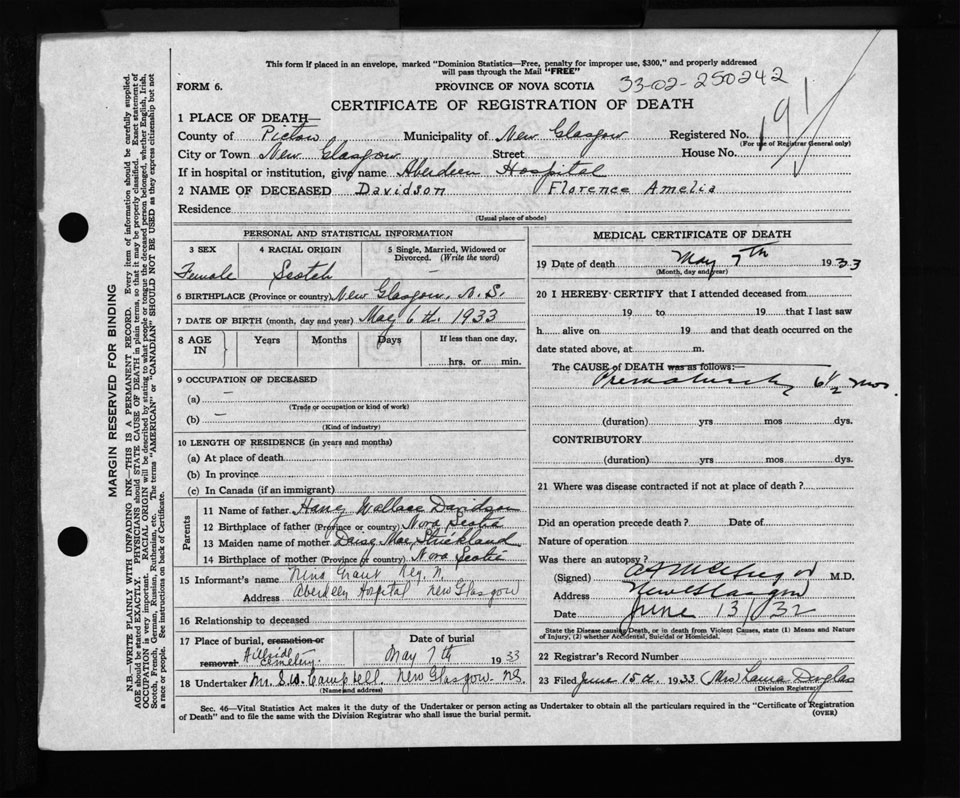 This form if placed in an envelope, marked "Dominion Statistics—Free, penalty for improper use, $300," and properly addressed
will pass through the Mail "FREE"
FORM 6.
PROVINCE OF NOVA SCOTIA
33-02-250242
CERTIFICATE OF REGISTRATION OF DEATH
191
1 PLACE OF DEATH—
County of Pictou Municipality of New Glasgow Registered No.
(For use of Registrar General only)
City or Town New Glasgow Street House No.
If in hospital or institution, give name Aberdeen Hospital
2 NAME OF DECEASED Davidson Florence Amelia
Residence
(Usual place of abode)
PERSONAL AND STATISTICAL INFORMATION
3 SEX 4 RACIAL ORIGIN 5 Single, Married, Widowed or
Divorced. (Write the word)
Female Scotch —
6 BIRTHPLACE (Province or country) New Glasgow, N.S.
7 DATE OF BIRTH (month, day and year) May 6th. 1933
8 AGE IN Years Months Days If less than one day,
hrs. or min.
9 OCCUPATION OF DECEASED
(a) —
(Trade or occupation or kind of work)
(b) —
(Kind of industry)
10 LENGTH OF RESIDENCE (in years and months)
(a) At place of death
(b) In province
(c) In Canada (if an immigrant)
Parents
11 Name of father Harry Wallace Davidson
12 Birthplace of father (Province or country) Nova Scotia
13 Maiden name of mother Daisy Mae Strickland
14 Birthplace of mother (Province or country) Nova Scotia
15 Informant's name Nina Grant Reg. N.
Address Aberdeen Hospital New Glasgow
16 Relationship to deceased
17 Place of burial, cremation or removal. Date of burial
Hillside Cemetery. May 7th 1933
18 Undertaker Mr. S.W. Campbell. New Glasgow. N.S.
(Name and address)
MEDICAL CERTIFICATE OF DEATH
19 Date of death May 7th 1933
(Month, day and year)
20 I HEREBY CERTIFY that I attended deceased from
19 to 19 that I last saw
h alive on 19 and that death occurred on the
date stated above, at m.
The CAUSE of DEATH was as follows:—
Prematurity 6½ mos
(duration) yrs mos dys.
CONTRIBUTORY
(duration) yrs mos dys.
21 Where was disease contracted if not at place of death?
Did an operation precede death? Date of
Nature of operation
Was there an autopsy?
(Signed) M.D.
Address New Glasgow
Date June 13/32
State the Disease causing Death, or in death from Violent Causes, state (1) Means and Nature
of Injury, (2) whether Accidental, Suicidal or Homicidal.
22 Registrar's Record Number
23 Filed June 15th. 1933 (Mrs) Laura Douglas
(Division Registrar)
Sec. 46—Vital Statistics Act makes it the duty of the Undertaker or person acting as Undertaker to obtain all the particulars required in the "Certificate of Registration
of Death" and to file the same with the Division Registrar who shall issue the burial permit.
(OVER)
MARGIN RESERVED FOR BINDING
N.B.—WRITE PLAINLY WITH UNFADING INK—THIS IS A PERMANENT RECORD. Every item of information should be carefully supplied.
AGE should be stated EXACTLY. PHYSICIANS should STATE CAUSE OF DEATH in plain terms, so that it may be properly classified. Exact statement of
OCCUPATION is very important. RACIAL ORIGIN will be described by stating to what people or tongue the deceased person belonged, whether English, Irish,
Scotch, French, German, Russian, Ruthenian, etc. The terms "AMERICAN" or "CANADIAN" SHOULD NOT BE USED as they express citizenship but not
a race or people. See instructions on back of Certificate.